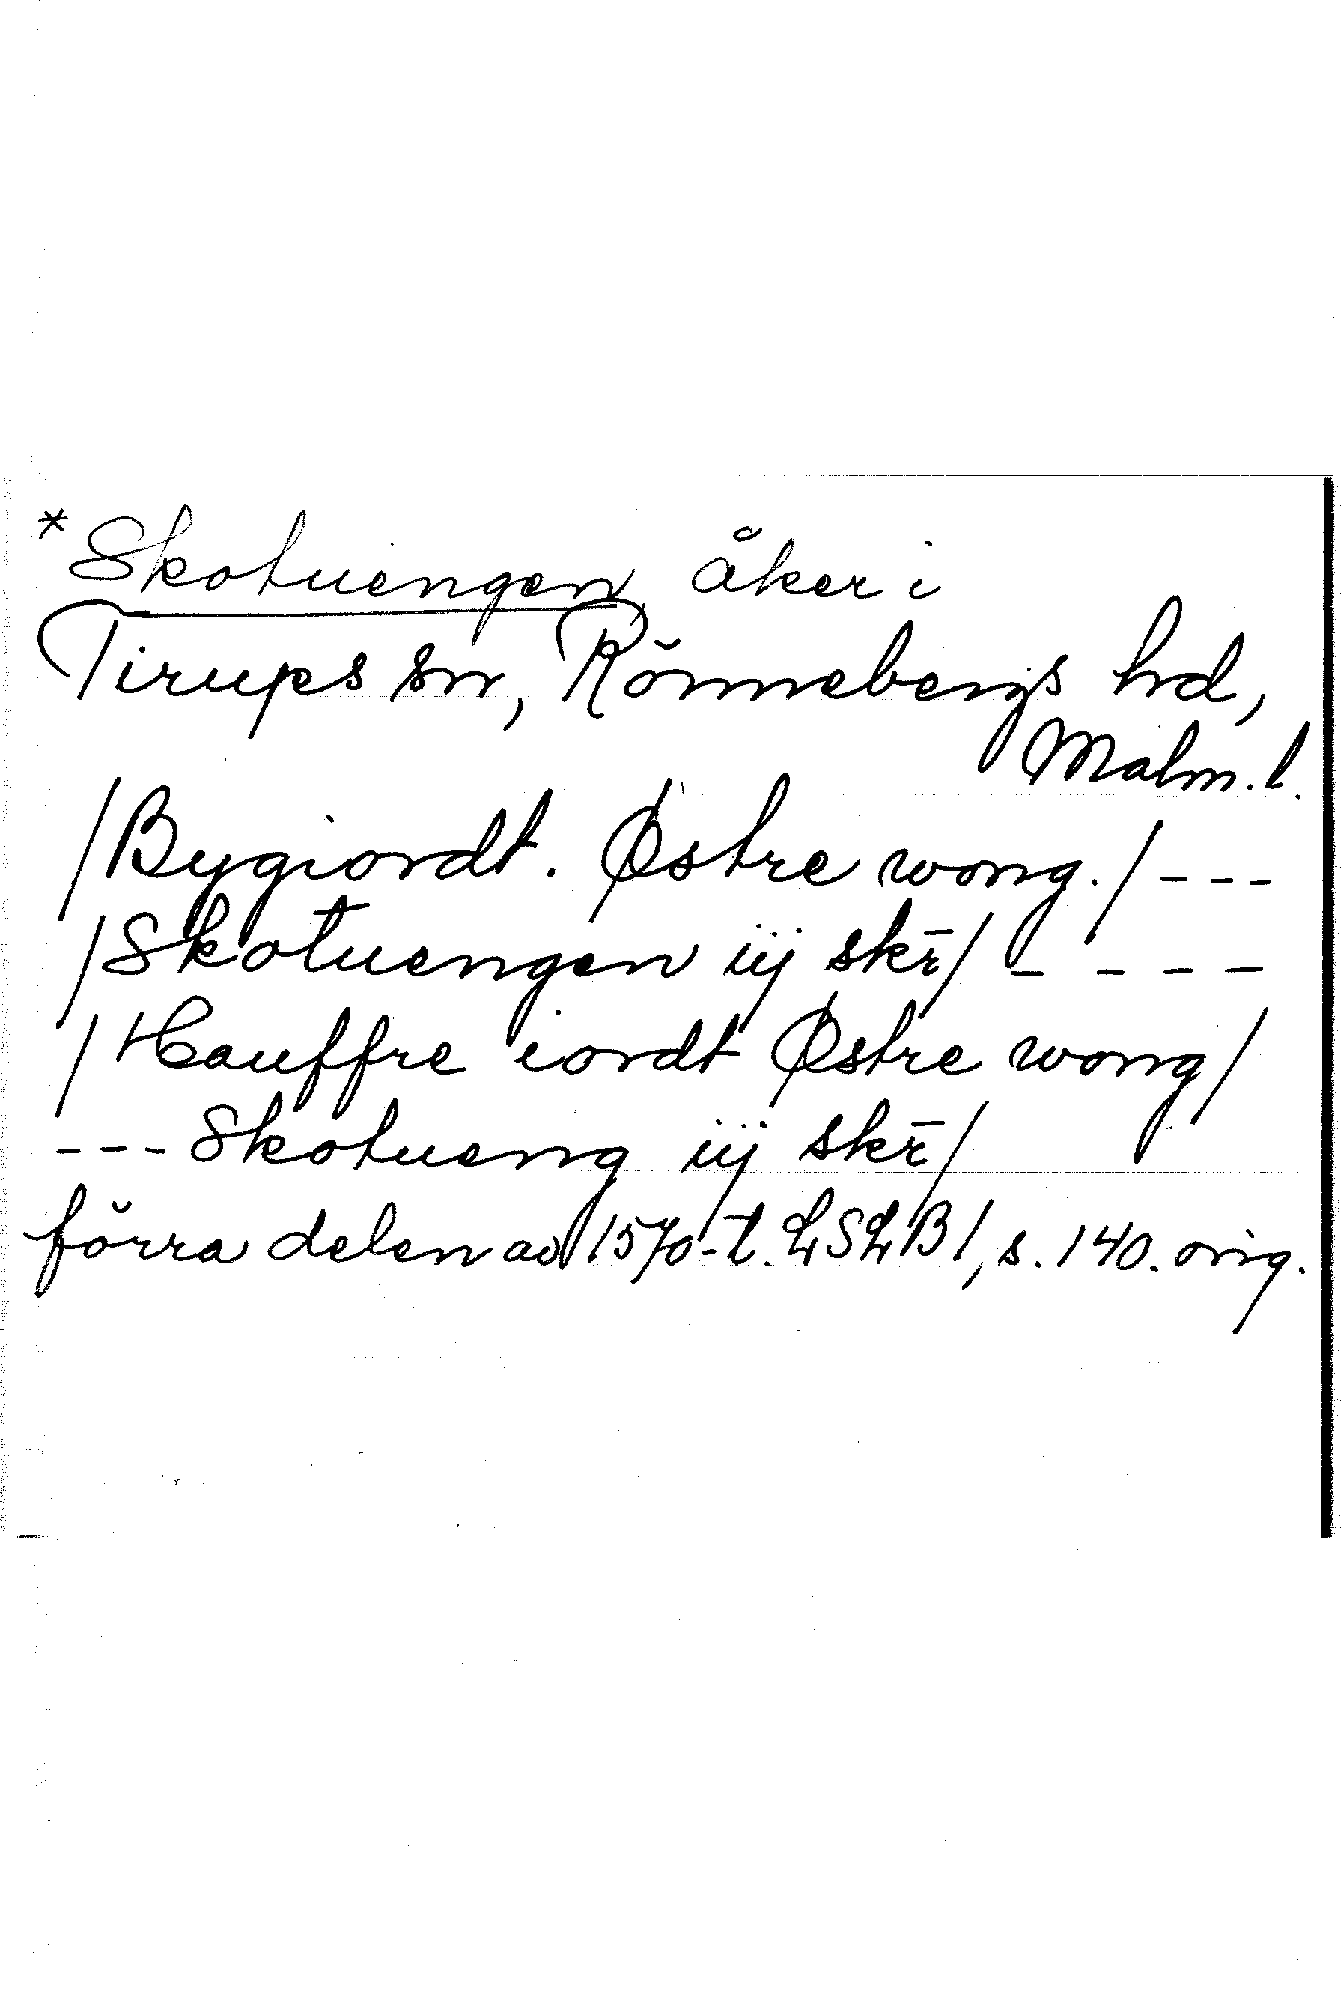 *Skotuengen åker i
Tirups sn, Rönnebergs hd,
Malm. l.
/Bygiordt. Østre wong./ ---
/Skotuengen iij skr̄/ ----
/Hauffre iordt Østre wong/
--- Skotueng iij skr̄/
förra delen av 1570-t. LSLB 1, s. 140. orig.